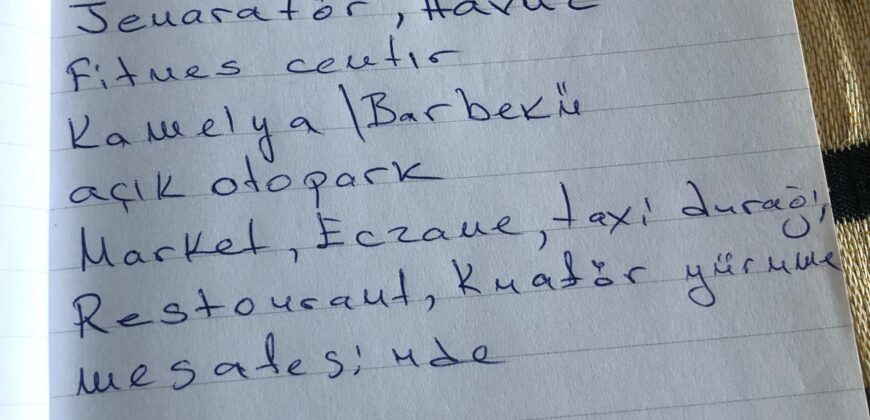 Jenaratör, Havuz
Fitnes centır
Kamelya \ Barbekü
açık otopark
Market, Eczane, taxi durağı,
Restourant, Kuaför yürüme
mesafesinde